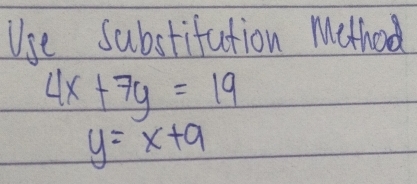 Use Substitution Method
4x + 7y = 19
y = x+9